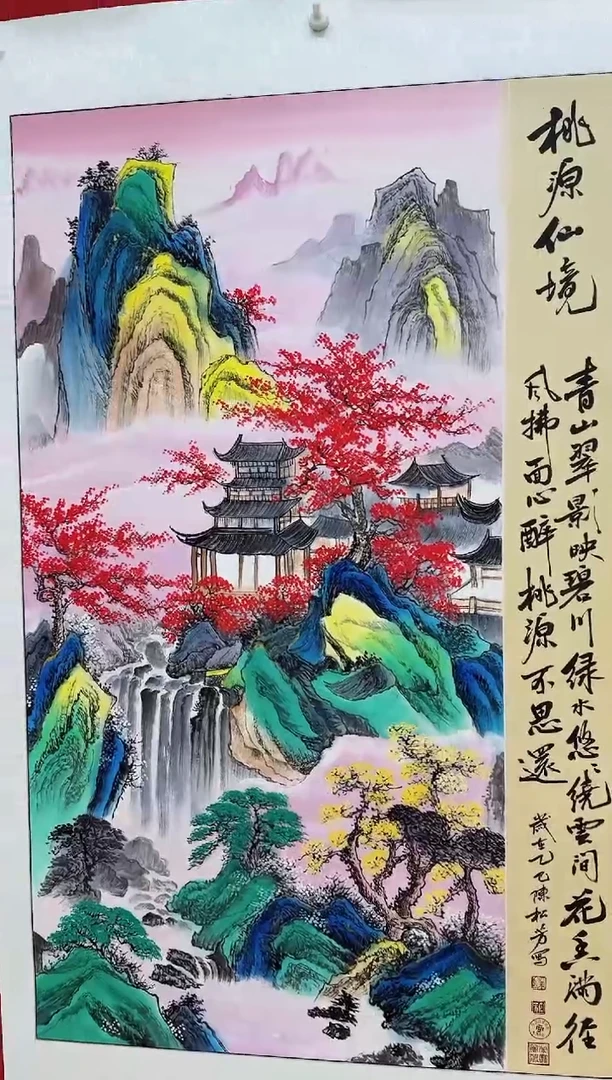 桃源仙境
青山翠影映碧川绿水悠々绕雲间花香满径
风拂面心醉桃源不思還
歲在乙巳陳松芳写